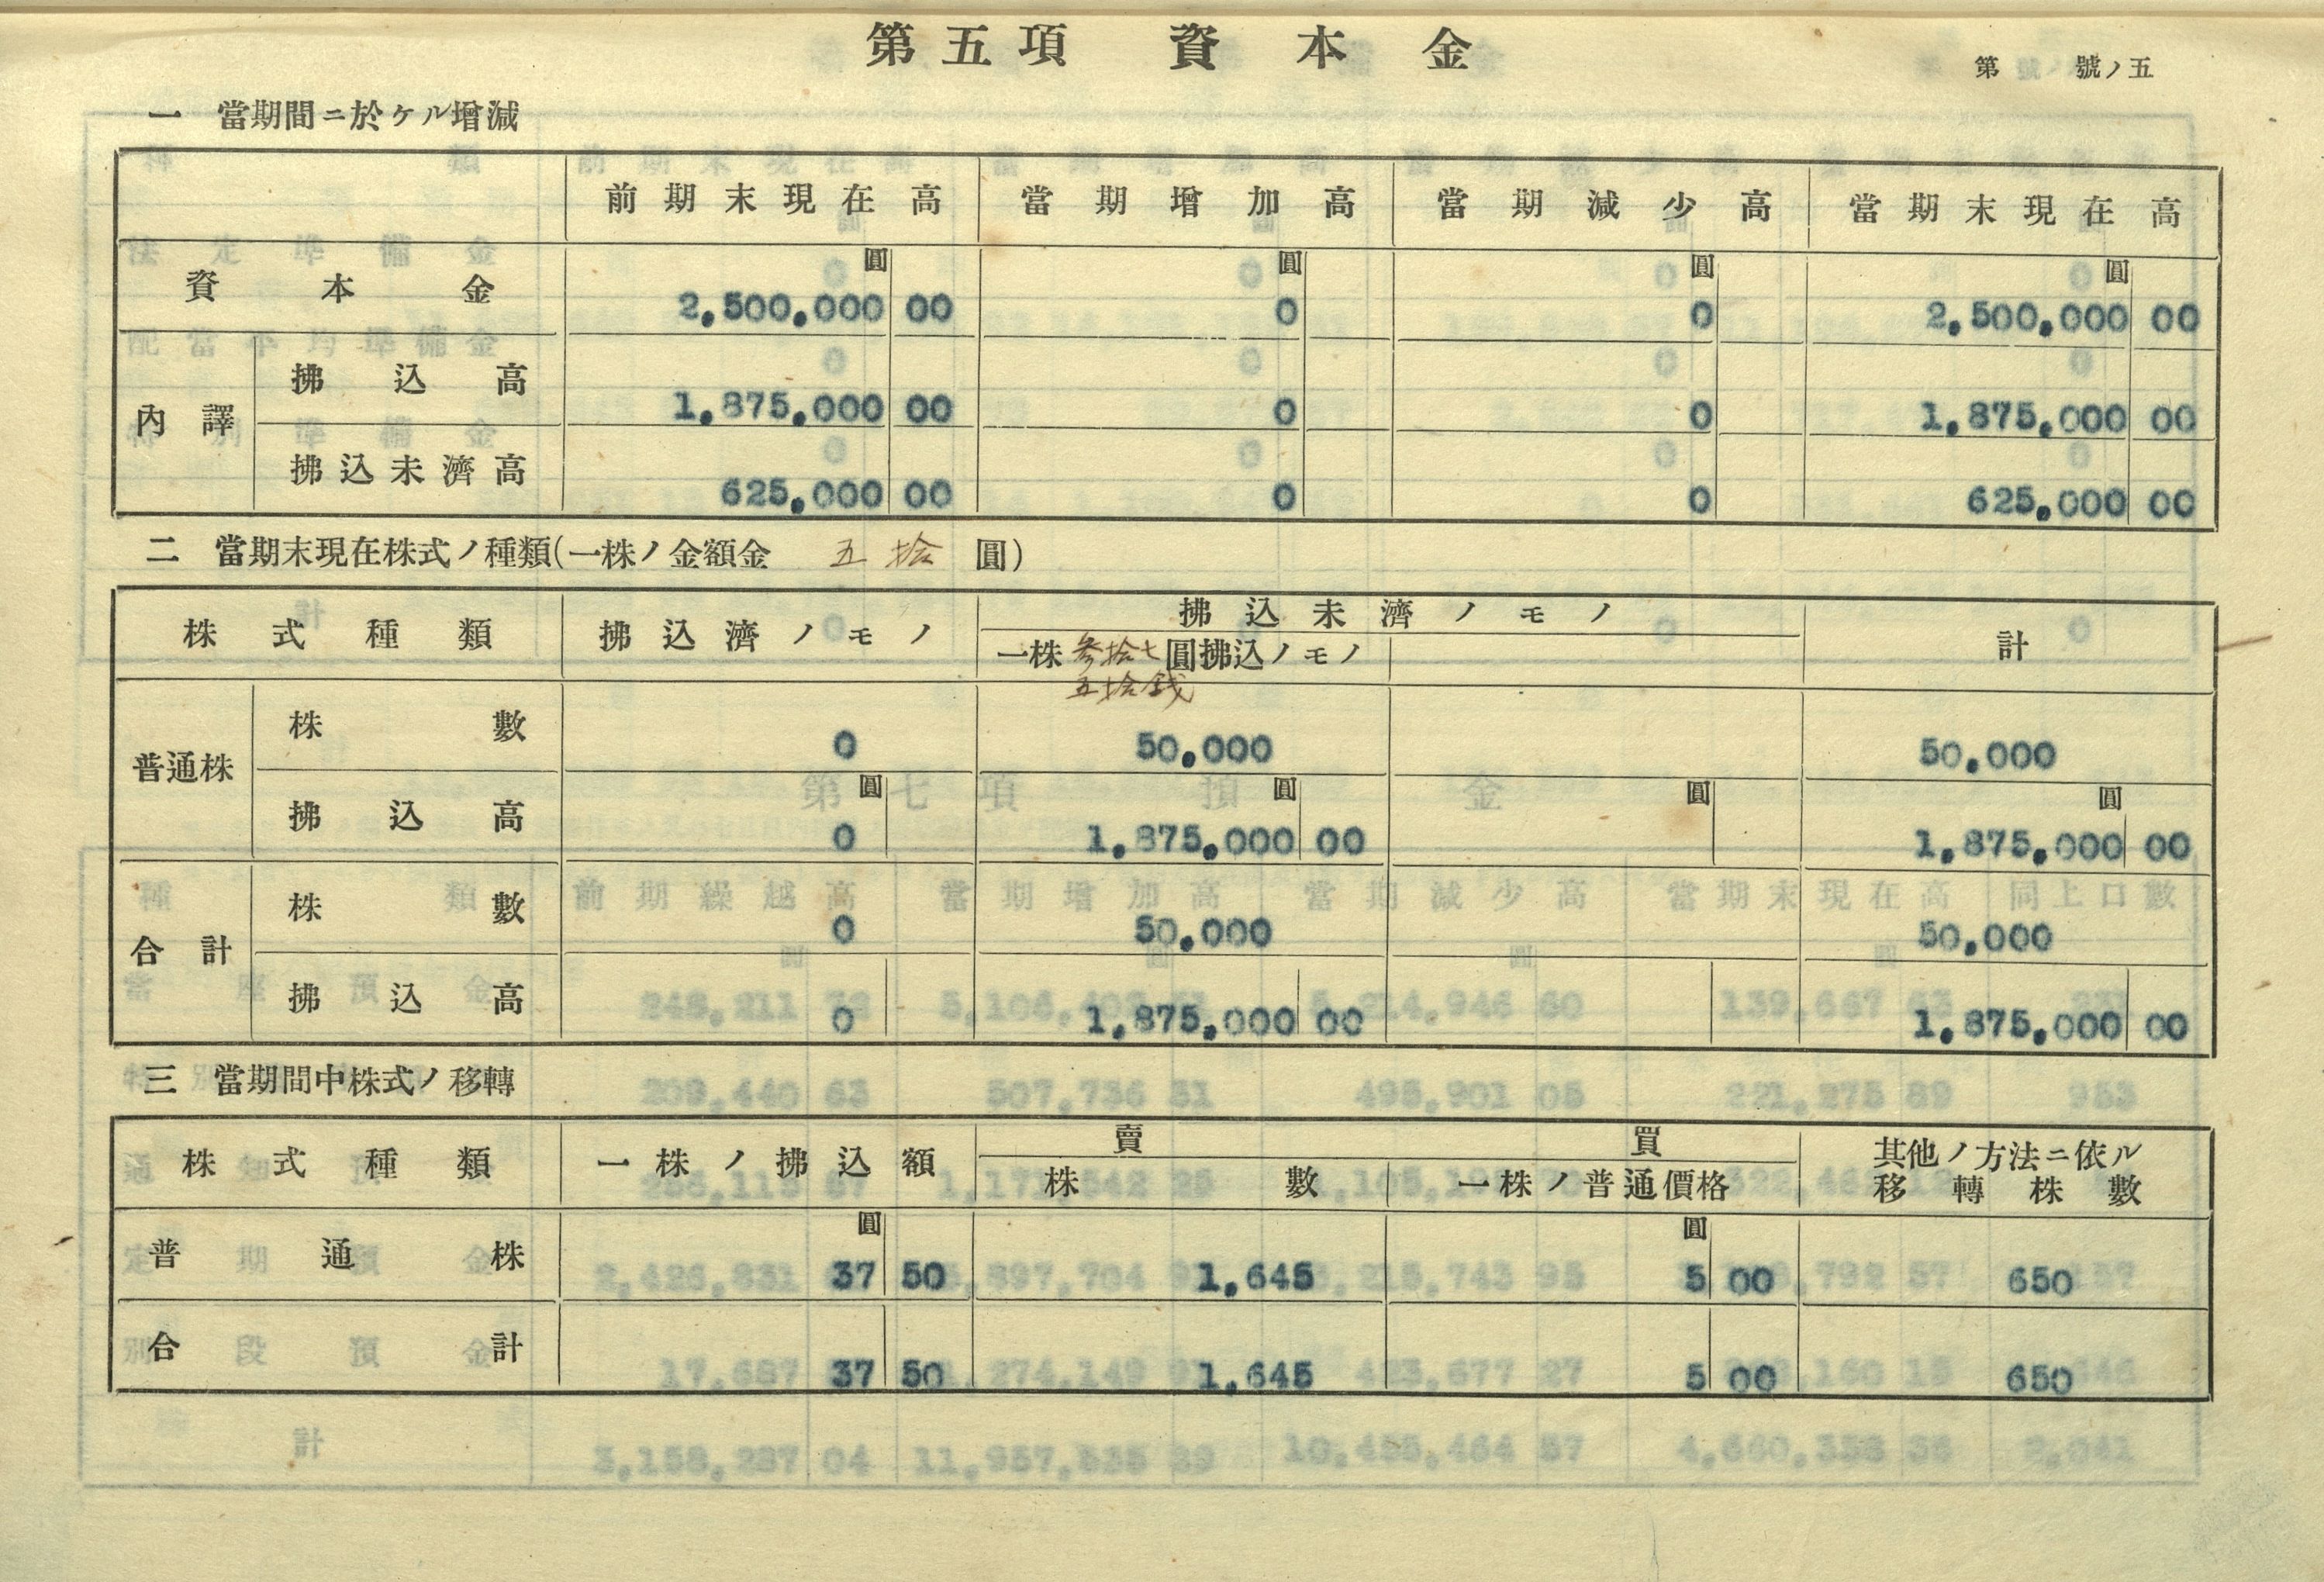 第五項 資本金
第 號ノ五
一 當期間ニ於ケル增減
前期末現在高 當期增加高 當期減少高 當期末現在高
圓 圓 圓 圓
資本金 2,500,000 00 0 0 2,500,000 00
內譯
拂込高 1,875,000 00 0 0 1,875,000 00
拂込未濟高 625,000 00 0 0 625,000 00
二 當期末現在株式ノ種類(一株ノ金額金 五拾 圓)
株式種類 拂込濟ノモノ 拂込未濟ノモノ 計
一株 參拾七 圓拂込ノモノ
五拾錢
普通株
株數 0 50,000 50,000
圓 圓 圓 圓
拂込高 0 1,875,000 00 1,875,000 00
合計
株數 0 50,000 50,000
拂込高 0 1,875,000 00 1,875,000 00
三 當期間中株式ノ移轉
株式種類 一株ノ拂込額 賣買 其他ノ方法ニ依ル
株數 一株ノ普通價格 移轉株數
圓 圓
普通株 37 50 1,645 5 00 650
合計 37 50 1,645 5 00 650